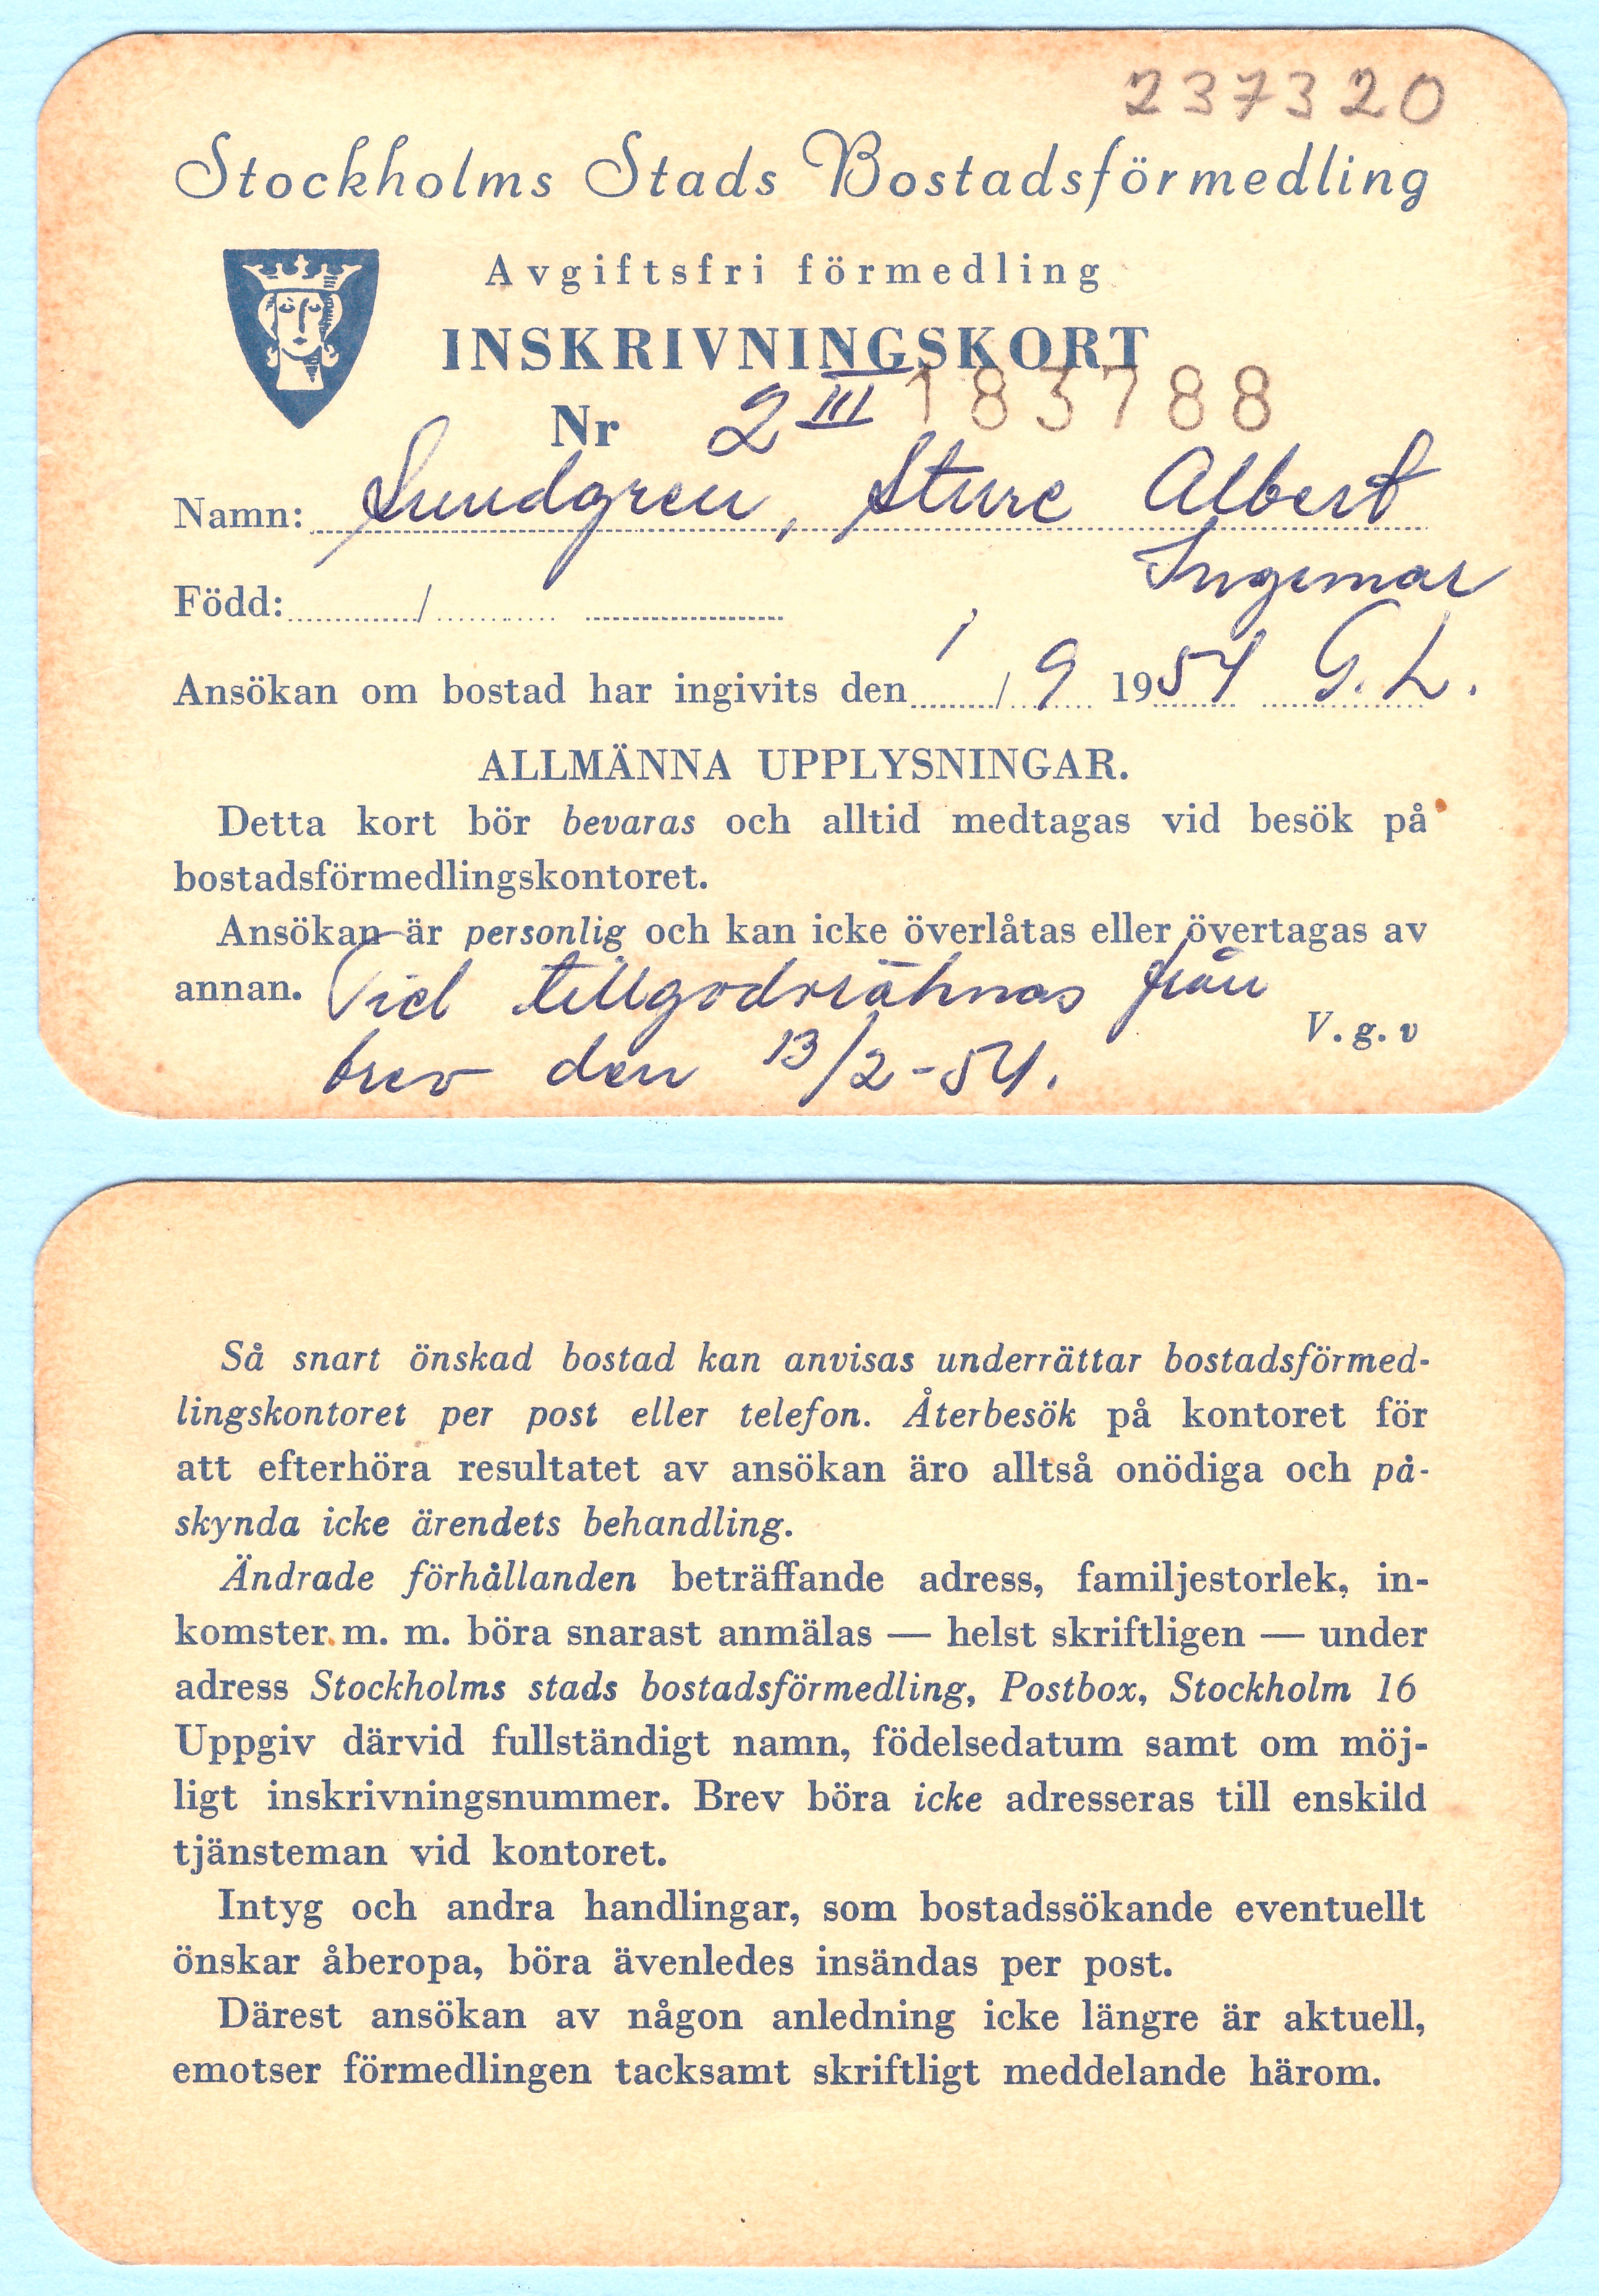 237320
Stockholms Stads Bostadsförmedling
Avgiftsfri förmedling
INSKRIVNINGSKORT
Nr 2 III 183788
Namn: Lundgren, Sture Albert
Ingemar
Född: /
Ansökan om bostad har ingivits den 1/9 1954 G. L.
ALLMÄNNA UPPLYSNINGAR.
Detta kort bör bevaras och alltid medtagas vid besök på
bostadsförmedlingskontoret.
Ansökan är personlig och kan icke överlåtas eller övertagas av
annan. Tid tillgodoräknas från
V. g. v
brev den 13/2-54.
Så snart önskad bostad kan anvisas underrättar bostadsförmed-
lingskontoret per post eller telefon. Återbesök på kontoret för
att efterhöra resultatet av ansökan äro alltså onödiga och på-
skynda icke ärendets behandling.
Ändrade förhållanden beträffande adress, familjestorlek, in-
komster m. m. böra snarast anmälas — helst skriftligen — under
adress Stockholms stads bostadsförmedling, Postbox, Stockholm 16
Uppgiv därvid fullständigt namn, födelsedatum samt om möj-
ligt inskrivningsnummer. Brev böra icke adresseras till enskild
tjänsteman vid kontoret.
Intyg och andra handlingar, som bostadssökande eventuellt
önskar åberopa, böra ävenledes insändas per post.
Därest ansökan av någon anledning icke längre är aktuell,
emotser förmedlingen tacksamt skriftligt meddelande härom.